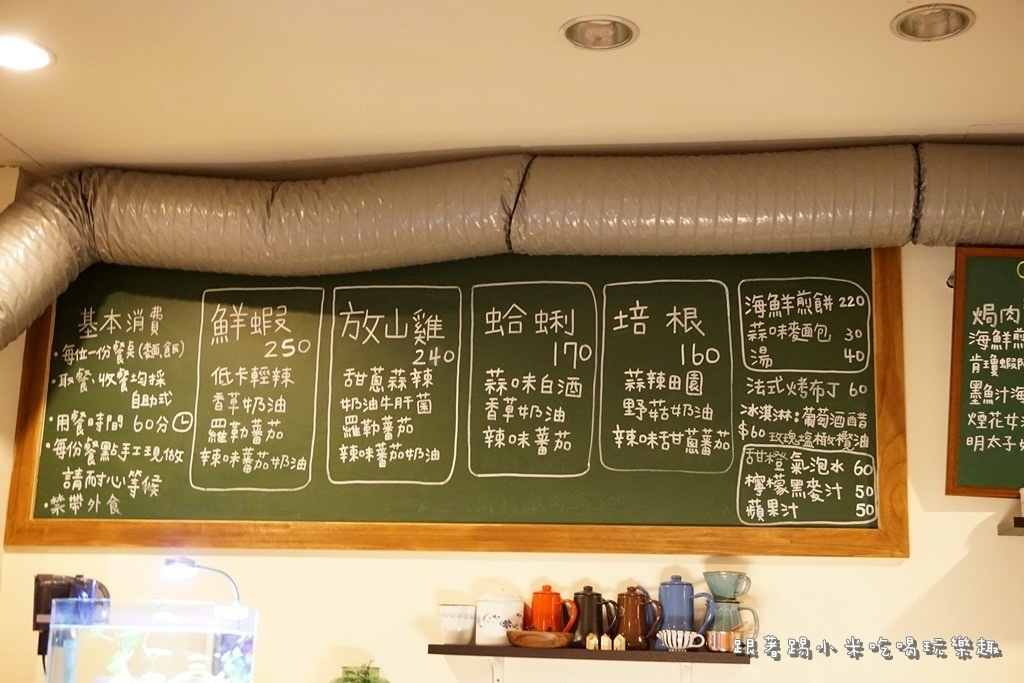 基本消費
·每位一份餐桌(麵,飯)
·取餐、收餐均採
自助式
·用餐時間 60分
·每份餐點手工現做
請耐心等候
·禁帶外食
鮮蝦
250
低卡輕辣
香草奶油
羅勒蕃茄
辣味蕃茄奶油
放山雞
240
甜蔥蒜辣
奶油牛肝菌
羅勒蕃茄
辣味蕃茄奶油
蛤蜊
170
蒜味白酒
香草奶油
辣味蕃茄
培根
160
蒜辣田園
野菇奶油
辣味甜蔥蕃茄
海鮮煎餅 220
蒜味麥麵包 30
湯 40
法式烤布丁 60
冰淇淋:葡萄酒醋
$60 玫瑰鹽橄欖油
甜橙氣泡水 60
檸檬黑麥汁 50
蘋果汁 50
焗肉
海鮮煎
墨魚汁海
煙花女
明太子
跟著踢小米吃喝玩樂趣